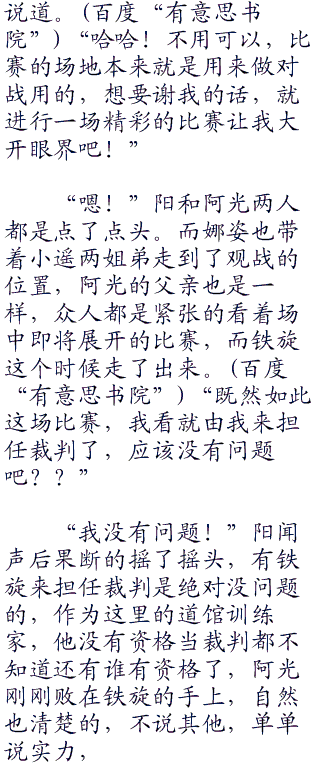 说道。(百度“有意思书
院”)“哈哈！不用可以，比
赛的场地本来就是用来做对
战用的，想要谢我的话，就
进行一场精彩的比赛让我大
开眼界吧！”
“嗯！”阳和阿光两人
都是点了点头。而娜姿也带
着小遥两姐弟走到了观战的
位置，阿光的父亲也是一
样，众人都是紧张的看着场
中即将展开的比赛，而铁旋
这个时候走了出来。(百度
“有意思书院”)“既然如此
这场比赛，我看就由我来担
任裁判了，应该没有问题
吧？？”
“我没有问题！”阳闻
声后果断的摇了摇头，有铁
旋来担任裁判是绝对没问题
的，作为这里的道馆训练
家，他没有资格当裁判都不
知道还有谁有资格了，阿光
刚刚败在铁旋的手上，自然
也清楚的，不说其他，单单
说实力，